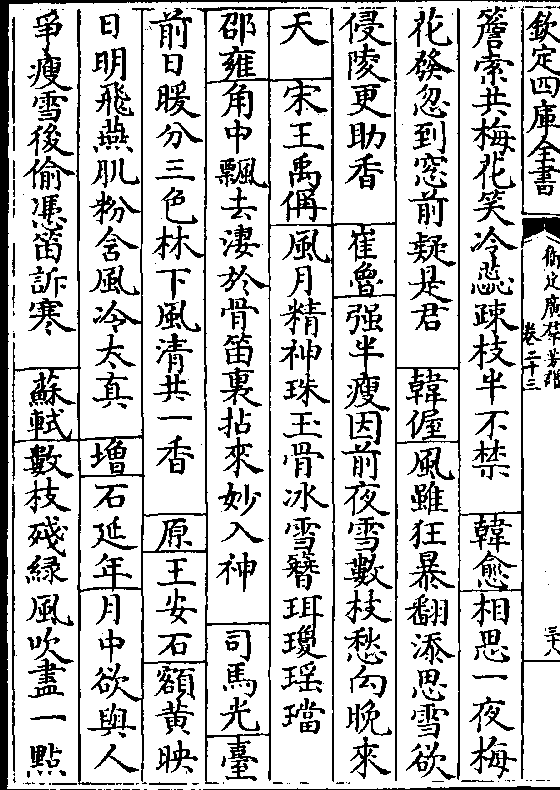 欽定四庫全書
御定廣羣芳譜
卷二十三
三八
簷索共梅花笑冷蕊疎枝半不禁 韓愈相思一夜梅
花發忽到窓前疑是君 韓偓風雖狂暴翻添思雪欲
侵陵更助香 崔魯强半瘦因前夜雪數枝愁向晚來
天 宋王禹偁風月精神珠玉骨冰雪簪珥瓊瑶璫
邵雍角中飄去淒於骨笛裏拈來妙入神 司馬光臺
前日暖分三色林下風清共一香 原王安石額黄映
日明飛燕肌粉含風冷太真 増石延年月中欲與人
爭瘦雪後偷憑笛訴寒 蘇軾數枝殘緑風吹盡一點